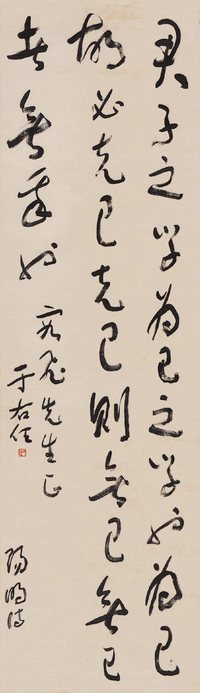 君子之學為己之學也為己
故必克己克己則無己無己
者無我也
先生正
于右任
陽明語